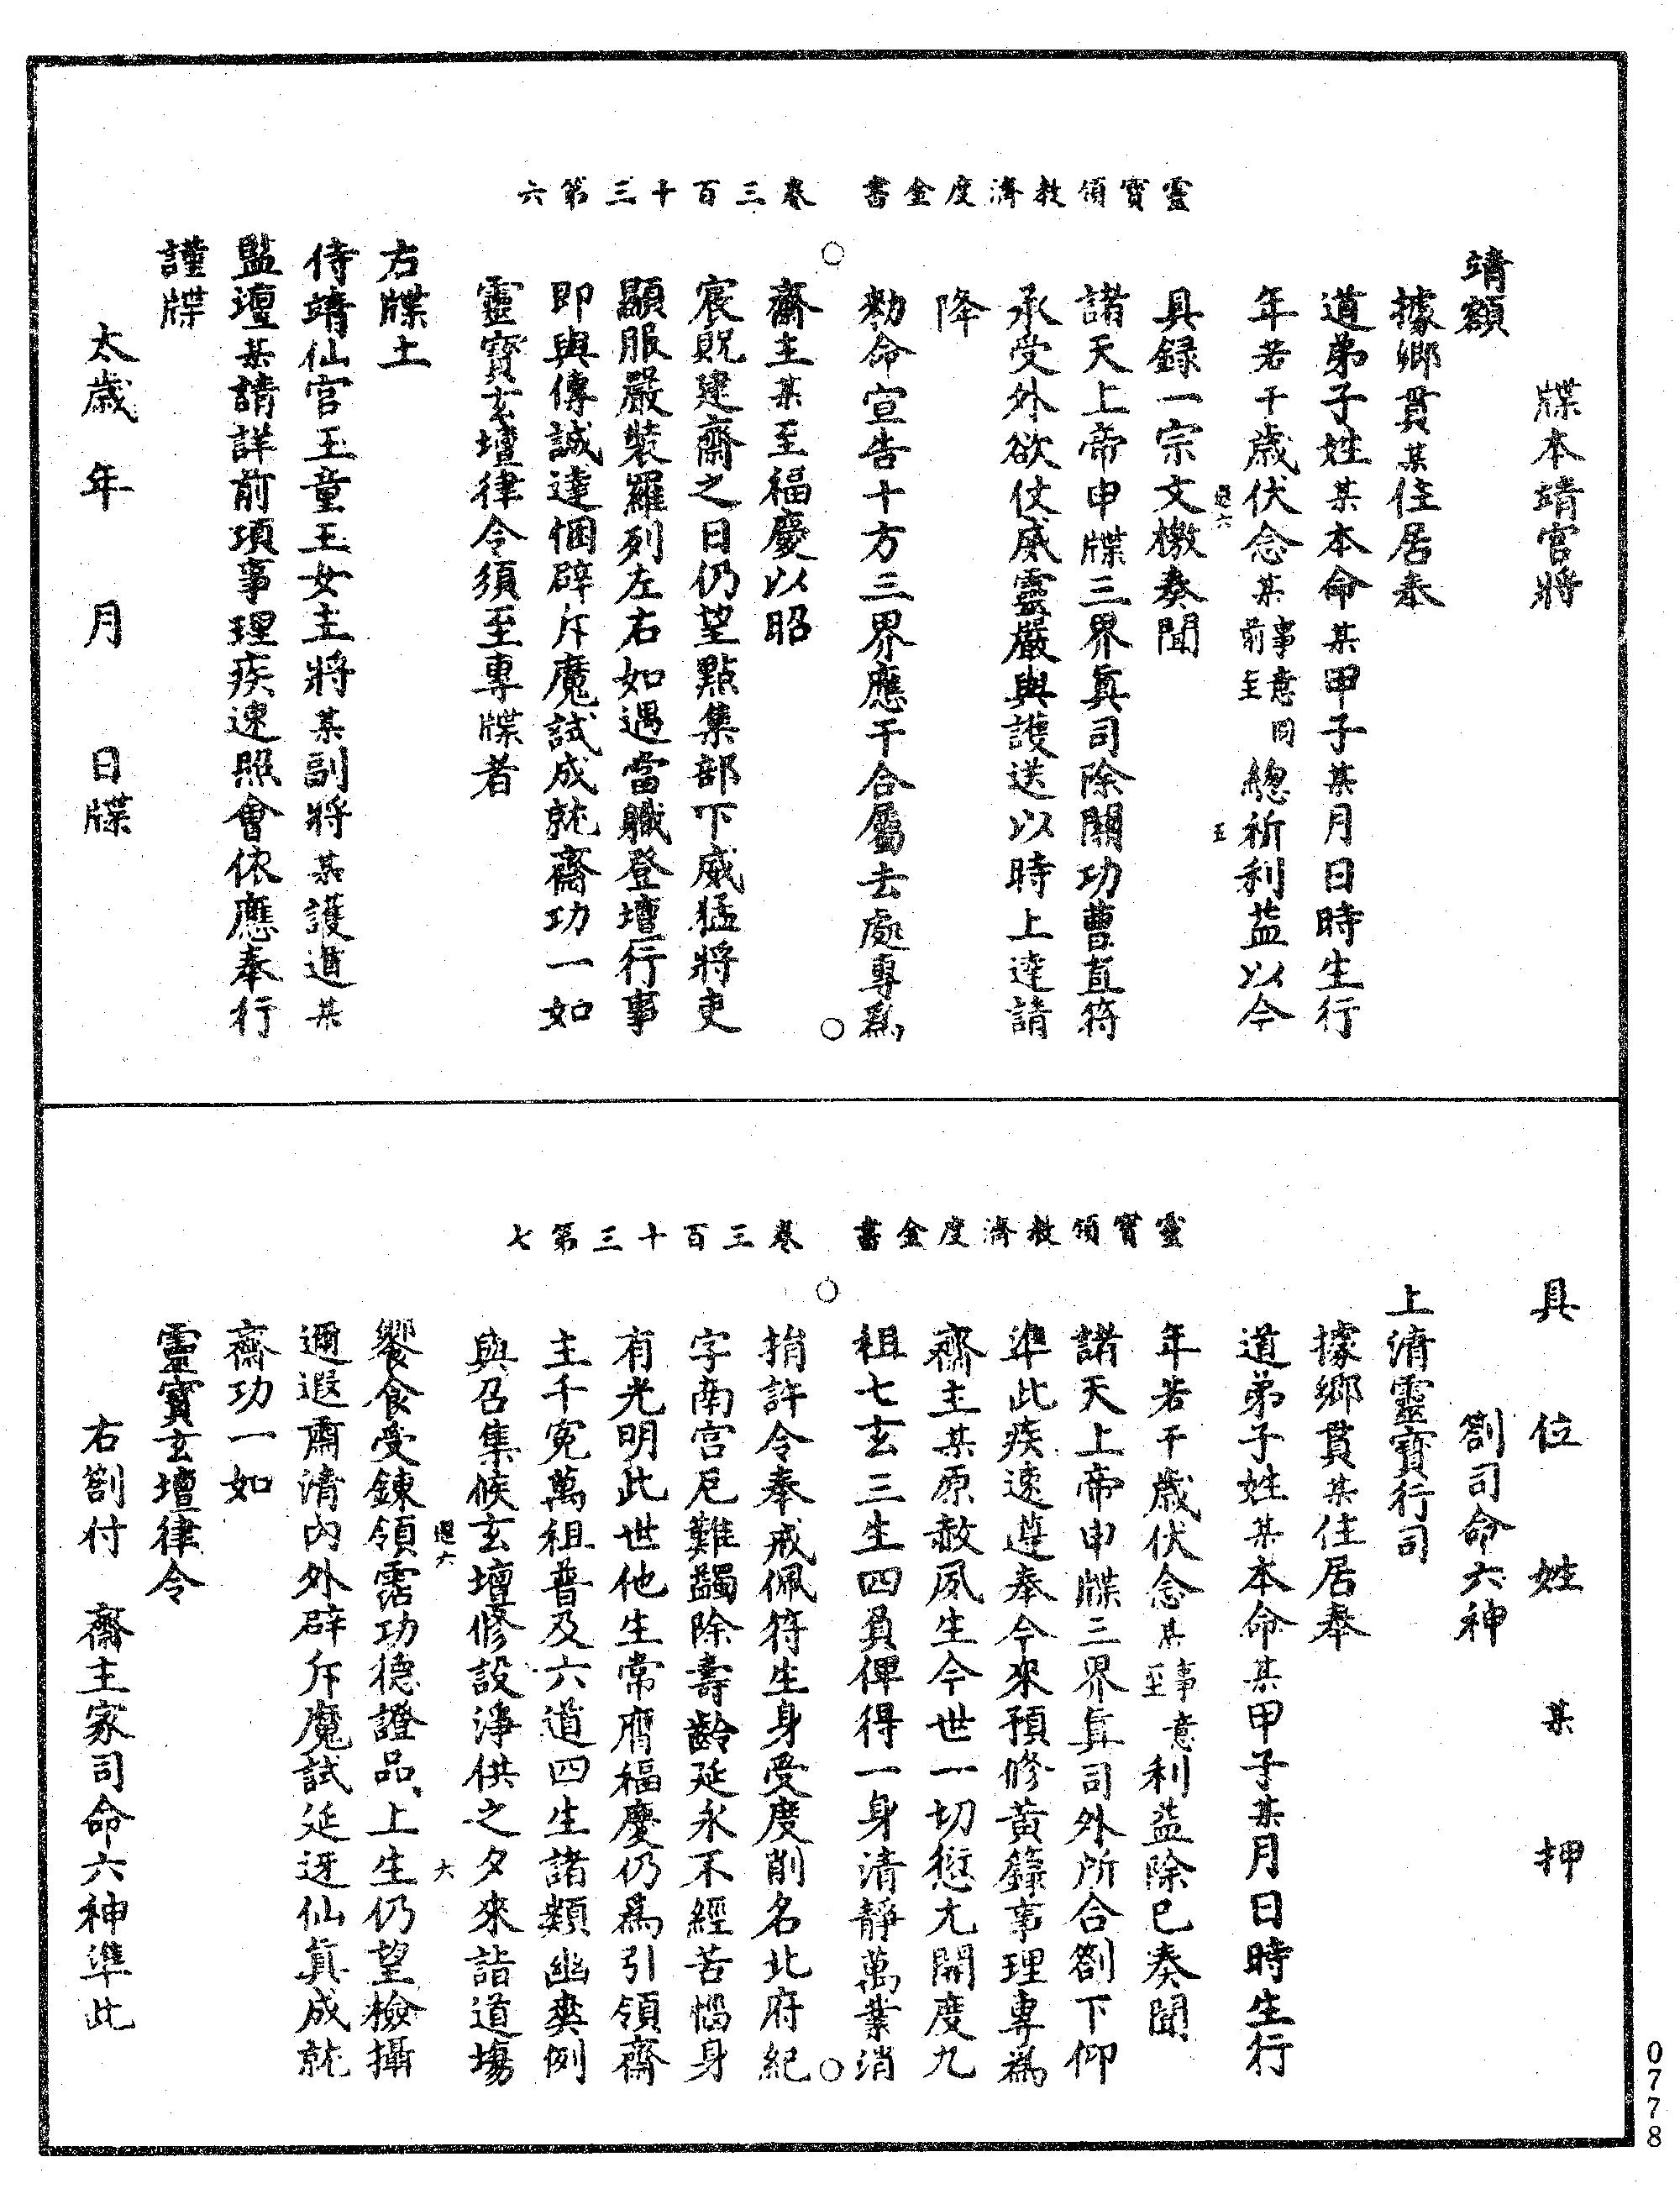 靈寶領教濟度金書　卷三百十三第六
牒本靖官將
靖額
據鄉貫某住居奉
道弟子姓某本命某甲子某月日時生行
年若干歲伏念某事意同前至總祈利益以今
具録一宗文檄奏聞
諸天上帝申牒三界真司除關功曹直符
承受外欲仗威靈嚴與護送以時上達請
降
勑命宣告十方三界應干合屬去處專爲
齋主某至福慶以昭
宸貺建齋之日仍望點集部下威猛將吏
顯服嚴裝羅列左右如遇當職登壇行事
即與傳誠達悃辟斥魔試成就齋功一如
靈寶玄壇律令須至專牒者
右牒土
侍靖仙官玉童玉女主將某副將某護道某
監壇某請詳前項事理疾速照會依應奉行
謹牒
太歲　年　月　日牒
靈寶領教濟度金書　卷三百十三第七
具　位　姓　某　押
劄司命六神
上清靈寶行司
據鄉貫某住居奉
道弟子姓某本命某甲子某月日時生行
年若干歲伏念某事意至利益除已奏聞
諸天上帝申牒三界真司外所合劄下仰
準此疾速遵奉今來預修黃籙事理專爲
齋主某原赦夙生今世一切愆尤開度九
祖七玄三生四負俾得一身清靜萬業消
捐許令奉戒佩符生身受度削名北府紀
字南宮厄難蠲除壽齡延永不經苦惱身
有光明此世他生常膺福慶仍爲引領齋
主千冤萬祖普及六道四生諸類幽爽例
與召集候玄壇修設淨供之夕來詣道場
饗食受鍊領霑功德證品上生仍望檢攝
邇遐肅清內外辟斥魔試延迓仙真成就
齋功一如
靈寶玄壇律令
右劄付　齋主家司命六神準此
0778